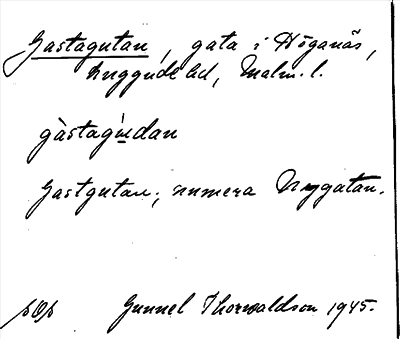 Gastagutan, gata i Höganäs,
Luggude hd, Malm. l.
gàstagu̲dan
Gastgutan; numera Nygatan.
Gunnel Thorvaldson 1945.